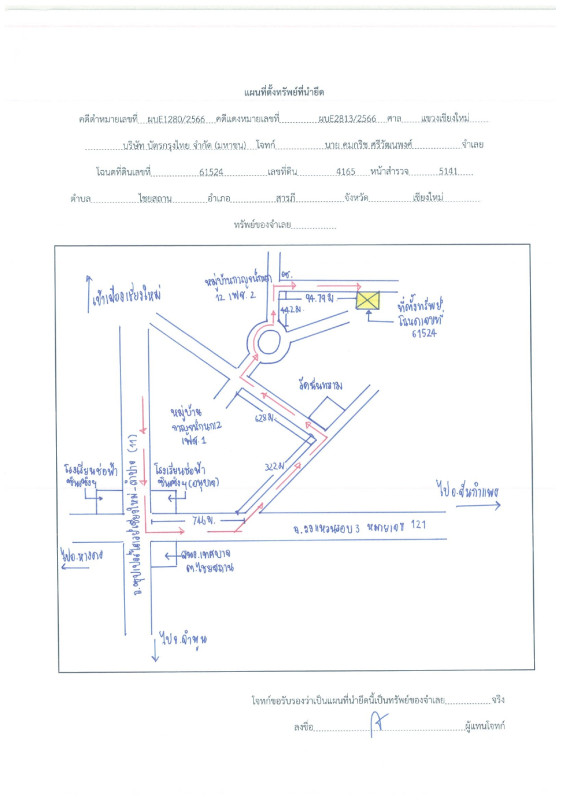 แผนที่ตั้งทรัพย์ที่นำยึด
คดีดำหมายเลขที่ ผบE1280/2566 คดีแดงหมายเลขที่ ผบE2813/2566 ศาล แขวงเชียงใหม่
บริษัท บัตรกรุงไทย จำกัด (มหาชน) โจทก์ นาย คมกริช ศรีวัฒนพงศ์ จำเลย
โฉนดที่ดินเลขที่ 61524 เลขที่ดิน 4165 หน้าสำรวจ 5141
ตำบล ไชยสถาน อำเภอ สารภี จังหวัด เชียงใหม่
ทรัพย์ของจำเลย
เข้าเมืองเชียงใหม่
หมู่บ้านกาญจน์กนก
12 เฟส 2
ซ.
94.79 ม
442 ม
ที่ตั้งทรัพย์
โฉนดเลขที่
61524
หมู่บ้าน
กาญจน์กนก12
เฟส 1
628 ม.
322 ม
โรงเรียนช่อฟ้า
ซินเซิงฯ
โรงเรียนช่อฟ้า
ซินเซิงฯ(อนุบาล)
ถ.ซุปเปอร์ไฮเวย์เชียงใหม่-ลำปาง (11)
746 ม.
ไปอ.สันกำแพง
ถ.วงแหวนรอบ 3 หมายเลข 121
ไปอ.หางดง
สนง.เทศบาล
ต.ไชยสถาน
ไปจ.ลำพูน
โจทก์ขอรับรองว่าเป็นแผนที่นำยึดนี้เป็นทรัพย์ของจำเลย จริง
ลงชื่อ ผู้แทนโจทก์